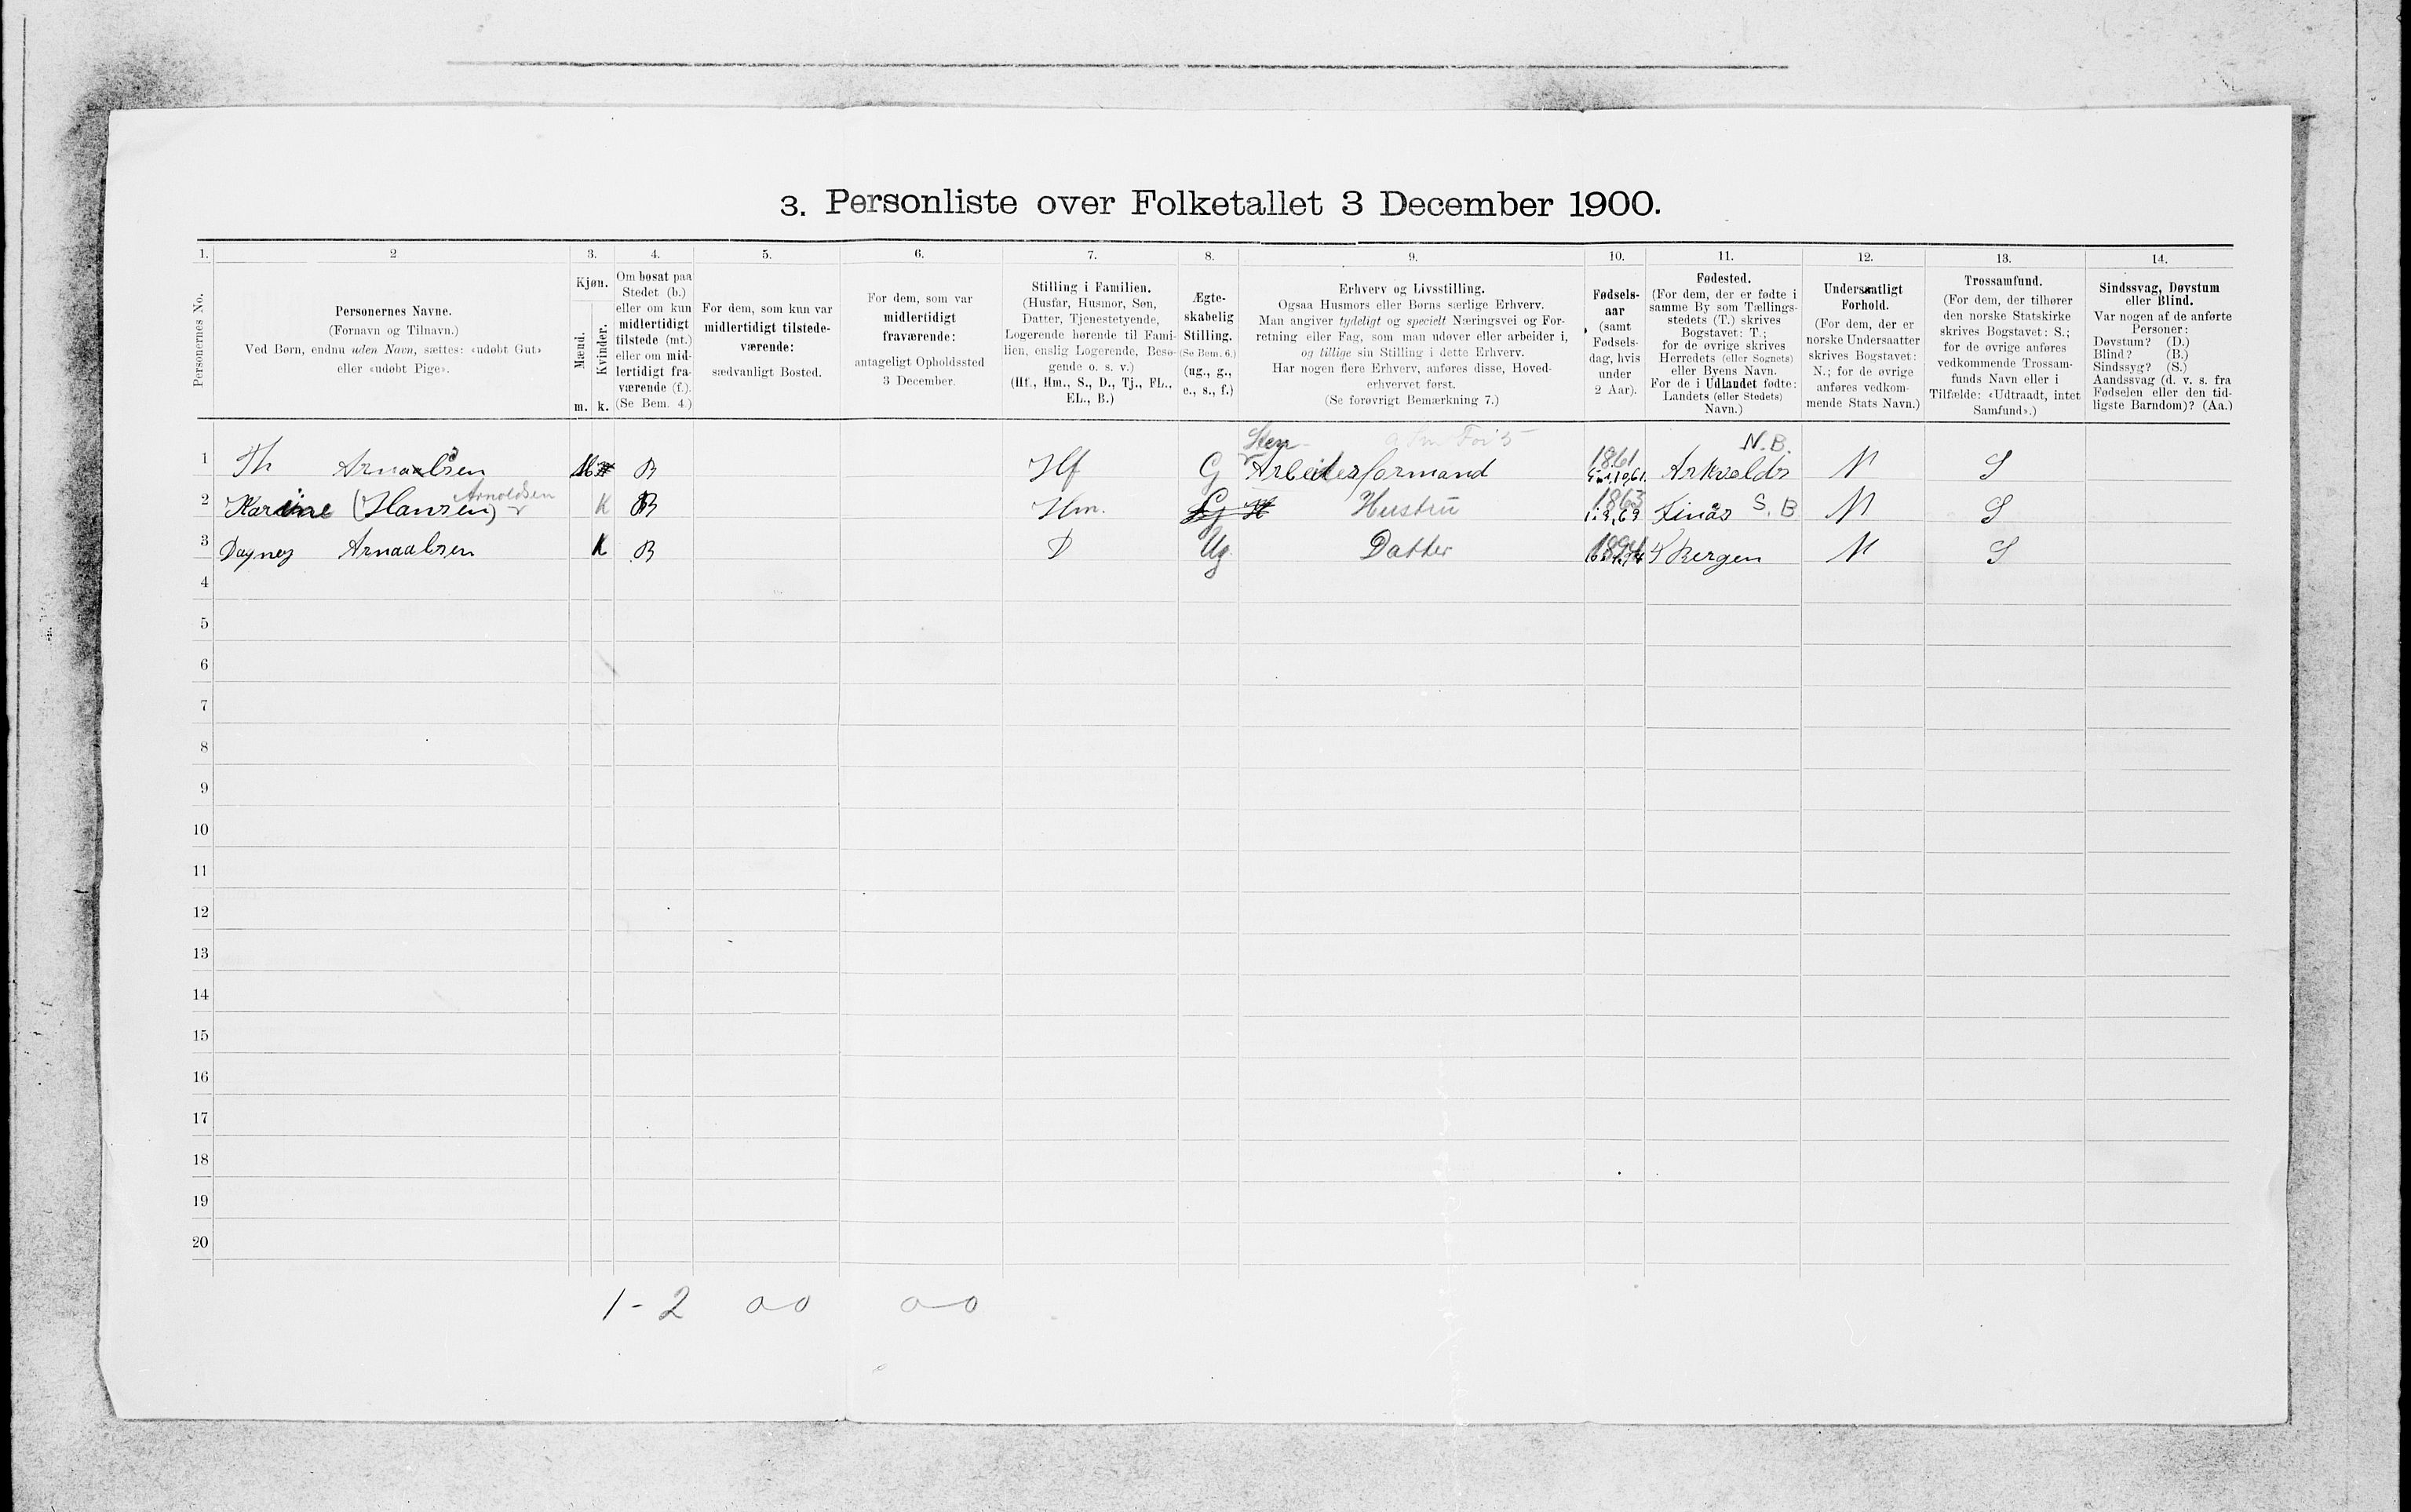 3. Personliste over Folketallet 3 December 1900.
1. 2 3. 4. 5. 6. 7. 8. 9. 10. 11. 12. 13. 14.
Personernes No.
Personernes Navne.
(Fornavn og Tilnavn.)
Ved Børn, endnu uden Navn, sættes: «udøbt Gut»
eller «udøbt Pige».
Kjøn.
Mænd.
Kvinder.
m. k.
Om bosat paa
Stedet (b.)
eller om kun
midlertidigt
tilstede (mt.)
eller om mid-
lertidigt fra-
værende (f.).
(Se Bem. 4.)
For dem, som kun var
midlertidigt tilstede-
værende:
sædvanligt Bosted.
For dem, som var
midlertidigt
fraværende:
antageligt Opholdssted
3 December.
Stilling i Familien.
(Husfar, Husmor, Søn,
Datter, Tjenestetyende,
Logerende hørende til Fami-
lien, enslig Logerende, Besø-
gende o. s. v.)
(Hf., Hm., S., D., Tj., FL.,
EL., B.)
Ægte-
skabelig
Stilling.
(Se Bem. 6.)
(ug., g.,
e., s., f.)
Erhverv og Livsstilling.
Ogsaa Husmors eller Børns særlige Erhverv.
Man angiver tydeligt og specielt Næringsvei og For-
retning eller Fag, som man udøver eller arbeider i,
og tillige sin Stilling i dette Erhverv.
Har nogen flere Erhverv, anføres disse, Hoved-
erhvervet først.
(Se forøvrigt Bemærkning 7.)
Fødsels-
aar
(samt
Fødsels-
dag, hvis
under
2 Aar).
Fødested.
(For dem, der er fødte i
samme By som Tællings-
stedets (T.) skrives
Bogstavet: T.;
for de øvrige skrives
Herredets (eller Sognets)
eller Byens Navn.
For de i Udlandet fødte:
Landets (eller Stedets)
Navn.)
Undersaatligt
Forhold.
(For dem, der er
norske Undersaatter
skrives Bogstavet:
N.; for de øvrige
anføres vedkom-
mende Stats Navn.)
Trossamfund.
(For dem, der tilhører
den norske Statskirke
skrives Bogstavet: S.;
for de øvrige anføres
vedkommende Trossam-
funds Navn eller i
Tilfælde: «Udtraadt, intet
Samfund».)
Sindssvag, Døvstum
eller Blind.
Var nogen af de anførte
Personer:
Døvstum? (D.)
Blind? (B.)
Sindssyg? (S.)
Aandssvag (d. v. s. fra
Fødselen eller den tid-
ligste Barndom)? (Aa.)
Sten N.B.
1 Th Arnaalsen B Hf G Arbeidesformand 1861 Arkvolds N S
Arnoldsen
2 Karine (Hansen) K B Hm. Hustru 1863 Finås S.B N S
3 Dagney Arnaalsen K B D Ug Datter 1894 Bergen N S
4
5
6
7
8
9
10
11
12
13
14
15
16
17
18
19
20
1-2 00 0-0